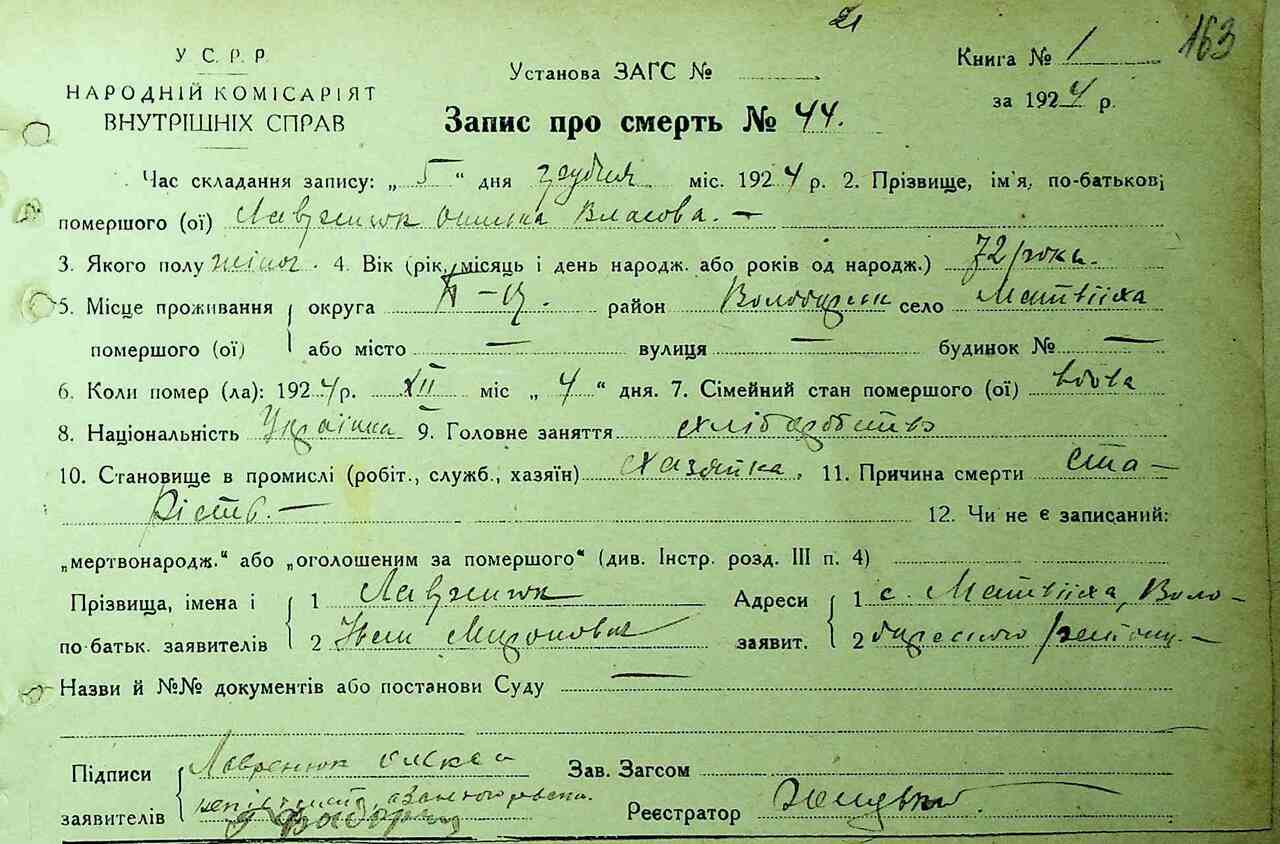 163
У С. Р. Р.
НАРОДНІЙ КОМІСАРІЯТ
ВНУТРІШНІХ СПРАВ
Установа ЗАГС №
Книга № 1
за 1924 р.
Запис про смерть № 44.
Час складання запису: „ 5 “ дня грудня міс. 1924 р. 2. Прізвище, ім'я, по-батькові
помершого (ої) Лавренюк Власова. —
3. Якого полу жіноч. 4. Вік (рік, місяць і день народж. або років од народж.) 72 роки.
5. Місце проживання округа район Володарськ село Матвіїха
помершого (ої) або місто — вулиця — будинок № —
6. Коли помер (ла): 1924 р. XII міс „ 4 “ дня. 7. Сімейний стан помершого (ої) вдова
8. Національність Українка 9. Головне заняття хліборобство
10. Становище в промислі (робіт., служб., хазяїн) хазяйка. 11. Причина смерти ста—
рість. — 12. Чи не є записаний:
„мертвонародж.“ або „оголошеним за помершого“ (див. Інстр. розд. III п. 4)
Прізвища, імена і 1 Лавренюк Адреси 1 с. Матвіїха, Воло—
по-батьк. заявителів 2 Миронович заявит. 2 дарського району. —
Назви й №№ документів або постанови Суду —
Підписи Лавренюк Зав. Загсом
заявителів Реєстратор